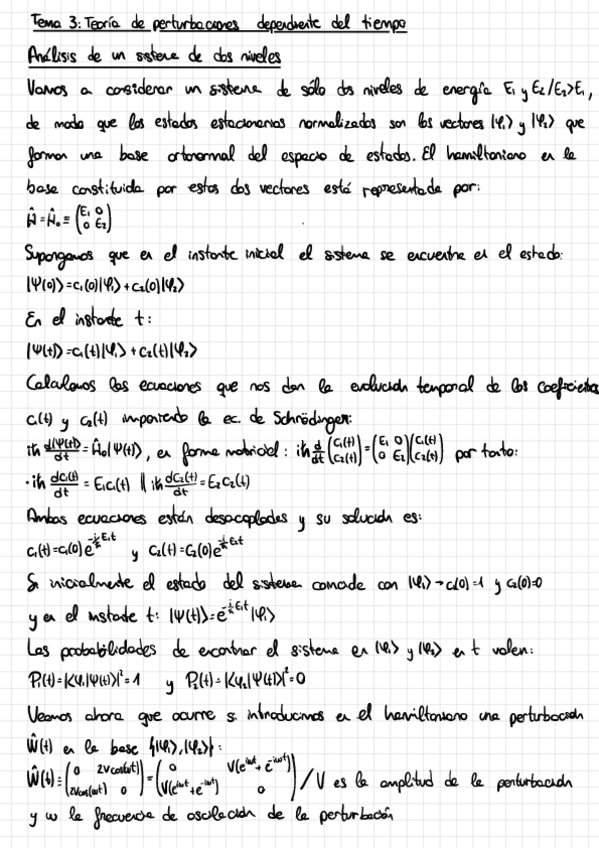 Tema 3: Teoría de perturbaciones dependiente del tiempo
Análisis de un sistema de dos niveles
Vamos a considerar un sistema de sólo dos niveles de energía E₁ y E₂/E₂>E₁,
de modo que los estados estacionarios normalizados son los vectores |φ₁⟩ y |φ₂⟩ que
forman una base ortonormal del espacio de estados. El hamiltoniano en la
base constituida por estos dos vectores está representada por:
Ĥ=Ĥ₀≡(E₁ 0 / 0 E₂)
Supongamos que en el instante inicial el sistema se encuentra en el estado:
|Ψ(0)⟩=c₁(0)|φ₁⟩+c₂(0)|φ₂⟩
En el instante t:
|Ψ(t)⟩=c₁(t)|φ₁⟩+c₂(t)|φ₂⟩
Calculamos las ecuaciones que nos dan la evolución temporal de los coeficientes
c₁(t) y c₂(t) imponiendo la ec. de Schrödinger:
iħ d|Ψ(t)⟩/dt = Ĥ₀|Ψ(t)⟩, en forma matricial: iħ d/dt (c₁(t) / c₂(t)) = (E₁ 0 / 0 E₂)(c₁(t) / c₂(t)) por tanto:
· iħ dc₁(t)/dt = E₁c₁(t) || iħ dc₂(t)/dt = E₂c₂(t)
Ambas ecuaciones están desacopladas y su solución es:
c₁(t)=c₁(0)e^(-i/ħ E₁t) y c₂(t)=c₂(0)e^(-i/ħ E₂t)
Si inicialmente el estado del sistema coincide con |φ₁⟩→c₁(0)=1 y c₂(0)=0
y en el instante t: |Ψ(t)⟩=e^(-i/ħ E₁t)|φ₁⟩
Las probabilidades de encontrar el sistema en |φ₁⟩ y |φ₂⟩ en t valen:
P₁(t)=|⟨φ₁|Ψ(t)⟩|²=1 y P₂(t)=|⟨φ₂|Ψ(t)⟩|²=0
Veamos ahora que ocurre si introducimos en el hamiltoniano una perturbación
Ŵ(t) en la base {|φ₁⟩,|φ₂⟩}:
Ŵ(t)≡(0 2Vcos(ωt) / 2Vcos(ωt) 0)=(0 V(e^(iωt)+e^(-iωt)) / V(e^(iωt)+e^(-iωt)) 0) / V es la amplitud de la perturbación
y ω la frecuencia de oscilación de la perturbación